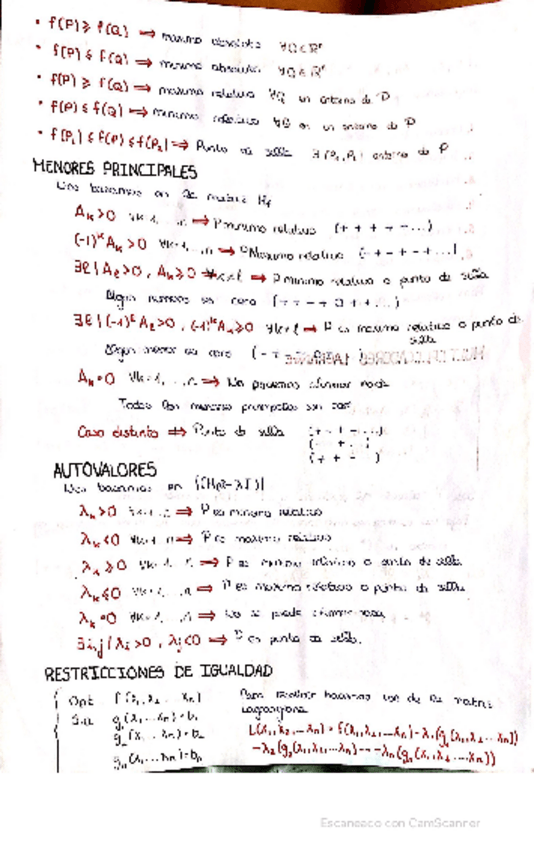 • f(P) ≥ f(Q) ⟹ maximo absoluto ∀Q ∈ Rⁿ
• f(P) ≤ f(Q) ⟹ minimo absoluto ∀Q ∈ Rⁿ
• f(P) ≥ f(Q) ⟹ maximo relativo ∀Q un entorno de P
• f(P) ≤ f(Q) ⟹ minimo relativo ∀Q en un entorno de P
• f(P₁) ≤ f(P) ≤ f(P₂) ⟹ Punto de silla ∃ (P₁, P₂) entorno de P
MENORES PRINCIPALES
Nos basamos en la matriz Hf
Aₖ > 0 ∀k=1,...,n ⟹ P minimo relativo (+ + + + - ...)
(-1)ᵏ Aₖ > 0 ∀k=1,...,n ⟹ P Maximo relativo (- + - + - + ...)
∃ℓ | Aℓ > 0, Aₖ ≥ 0 ∀k<ℓ ⟹ P minimo relativo o punto de silla
Algun numero es cero
∃ℓ | (-1)ᵏ Aℓ > 0, (-1)ᵏ Aₖ ≥ 0 ∀k<ℓ ⟹ P es maximo relativo o punto de silla
Algun menor es cero
Aₖ = 0 ∀k=1,...,n ⟹ No podemos afirmar nada
Todos los menores principales son cero
Caso distinto ⟹ Punto de silla
AUTOVALORES
Nos basamos en |(Hf(P)-λI)|
λₖ > 0 ∀k=1,...,n ⟹ P es minimo relativo
λₖ < 0 ∀k=1,...,n ⟹ P es maximo relativo
λₖ ≥ 0 ∀k=1,...,n ⟹ P es minimo relativo o punto de silla
λₖ ≤ 0 ∀k=1,...,n ⟹ P es maximo relativo o punto de silla
λₖ = 0 ∀k=1,...,n ⟹ No se puede afirmar nada
∃i,j / λᵢ > 0, λⱼ < 0 ⟹ P es punto de silla.
RESTRICCIONES DE IGUALDAD
Opt f(x₁,x₂...xₙ)
S.a g₁(x₁...xₙ) = b₁
g₂(x₁...xₙ) = b₂
gₙ(x₁...xₙ) = bₙ
Para resolver hacemos uso de la matriz
Lagrangiana
L(x₁,x₂,...xₙ) = f(x₁,x₂,...xₙ) - λ₁(g₁(x₁,x₂...xₙ))
-λ₂(g₂(x₁,x₂...xₙ) --- -λₙ(gₙ(x₁,x₂...xₙ))
Escaneado con CamScanner